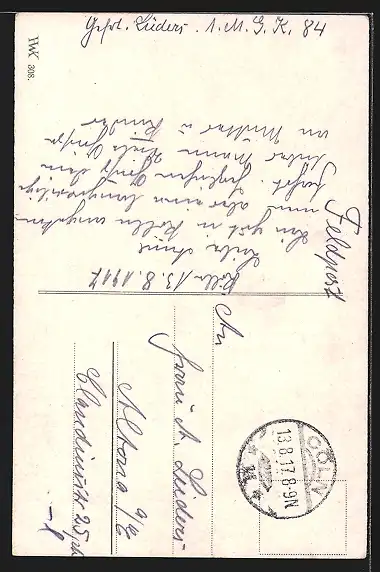 Gefrt. Lüders. 1. M. G. K. 84
Feldpost
Kölln 13.8.1917
Liebe Anne
bin gut in Kölln angekom-
men aber eine langweilige
Fahrt.
dein
lieber Mann Viele Grüße
an Mutter u Kinder
An
Frau A Lüders
Altona a/E
Claudiusstr 25
CÖLN
13.8.17.8-9N
HWK 308.